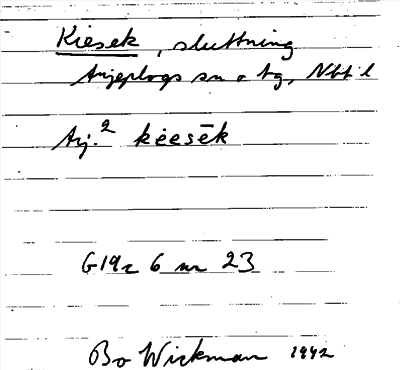 Kiesek, sluttning
Arjeplogs sn o tg, Nbt l
Arj.2 kėesēk
G19c 6 nr 23
Bo Wickman 1942